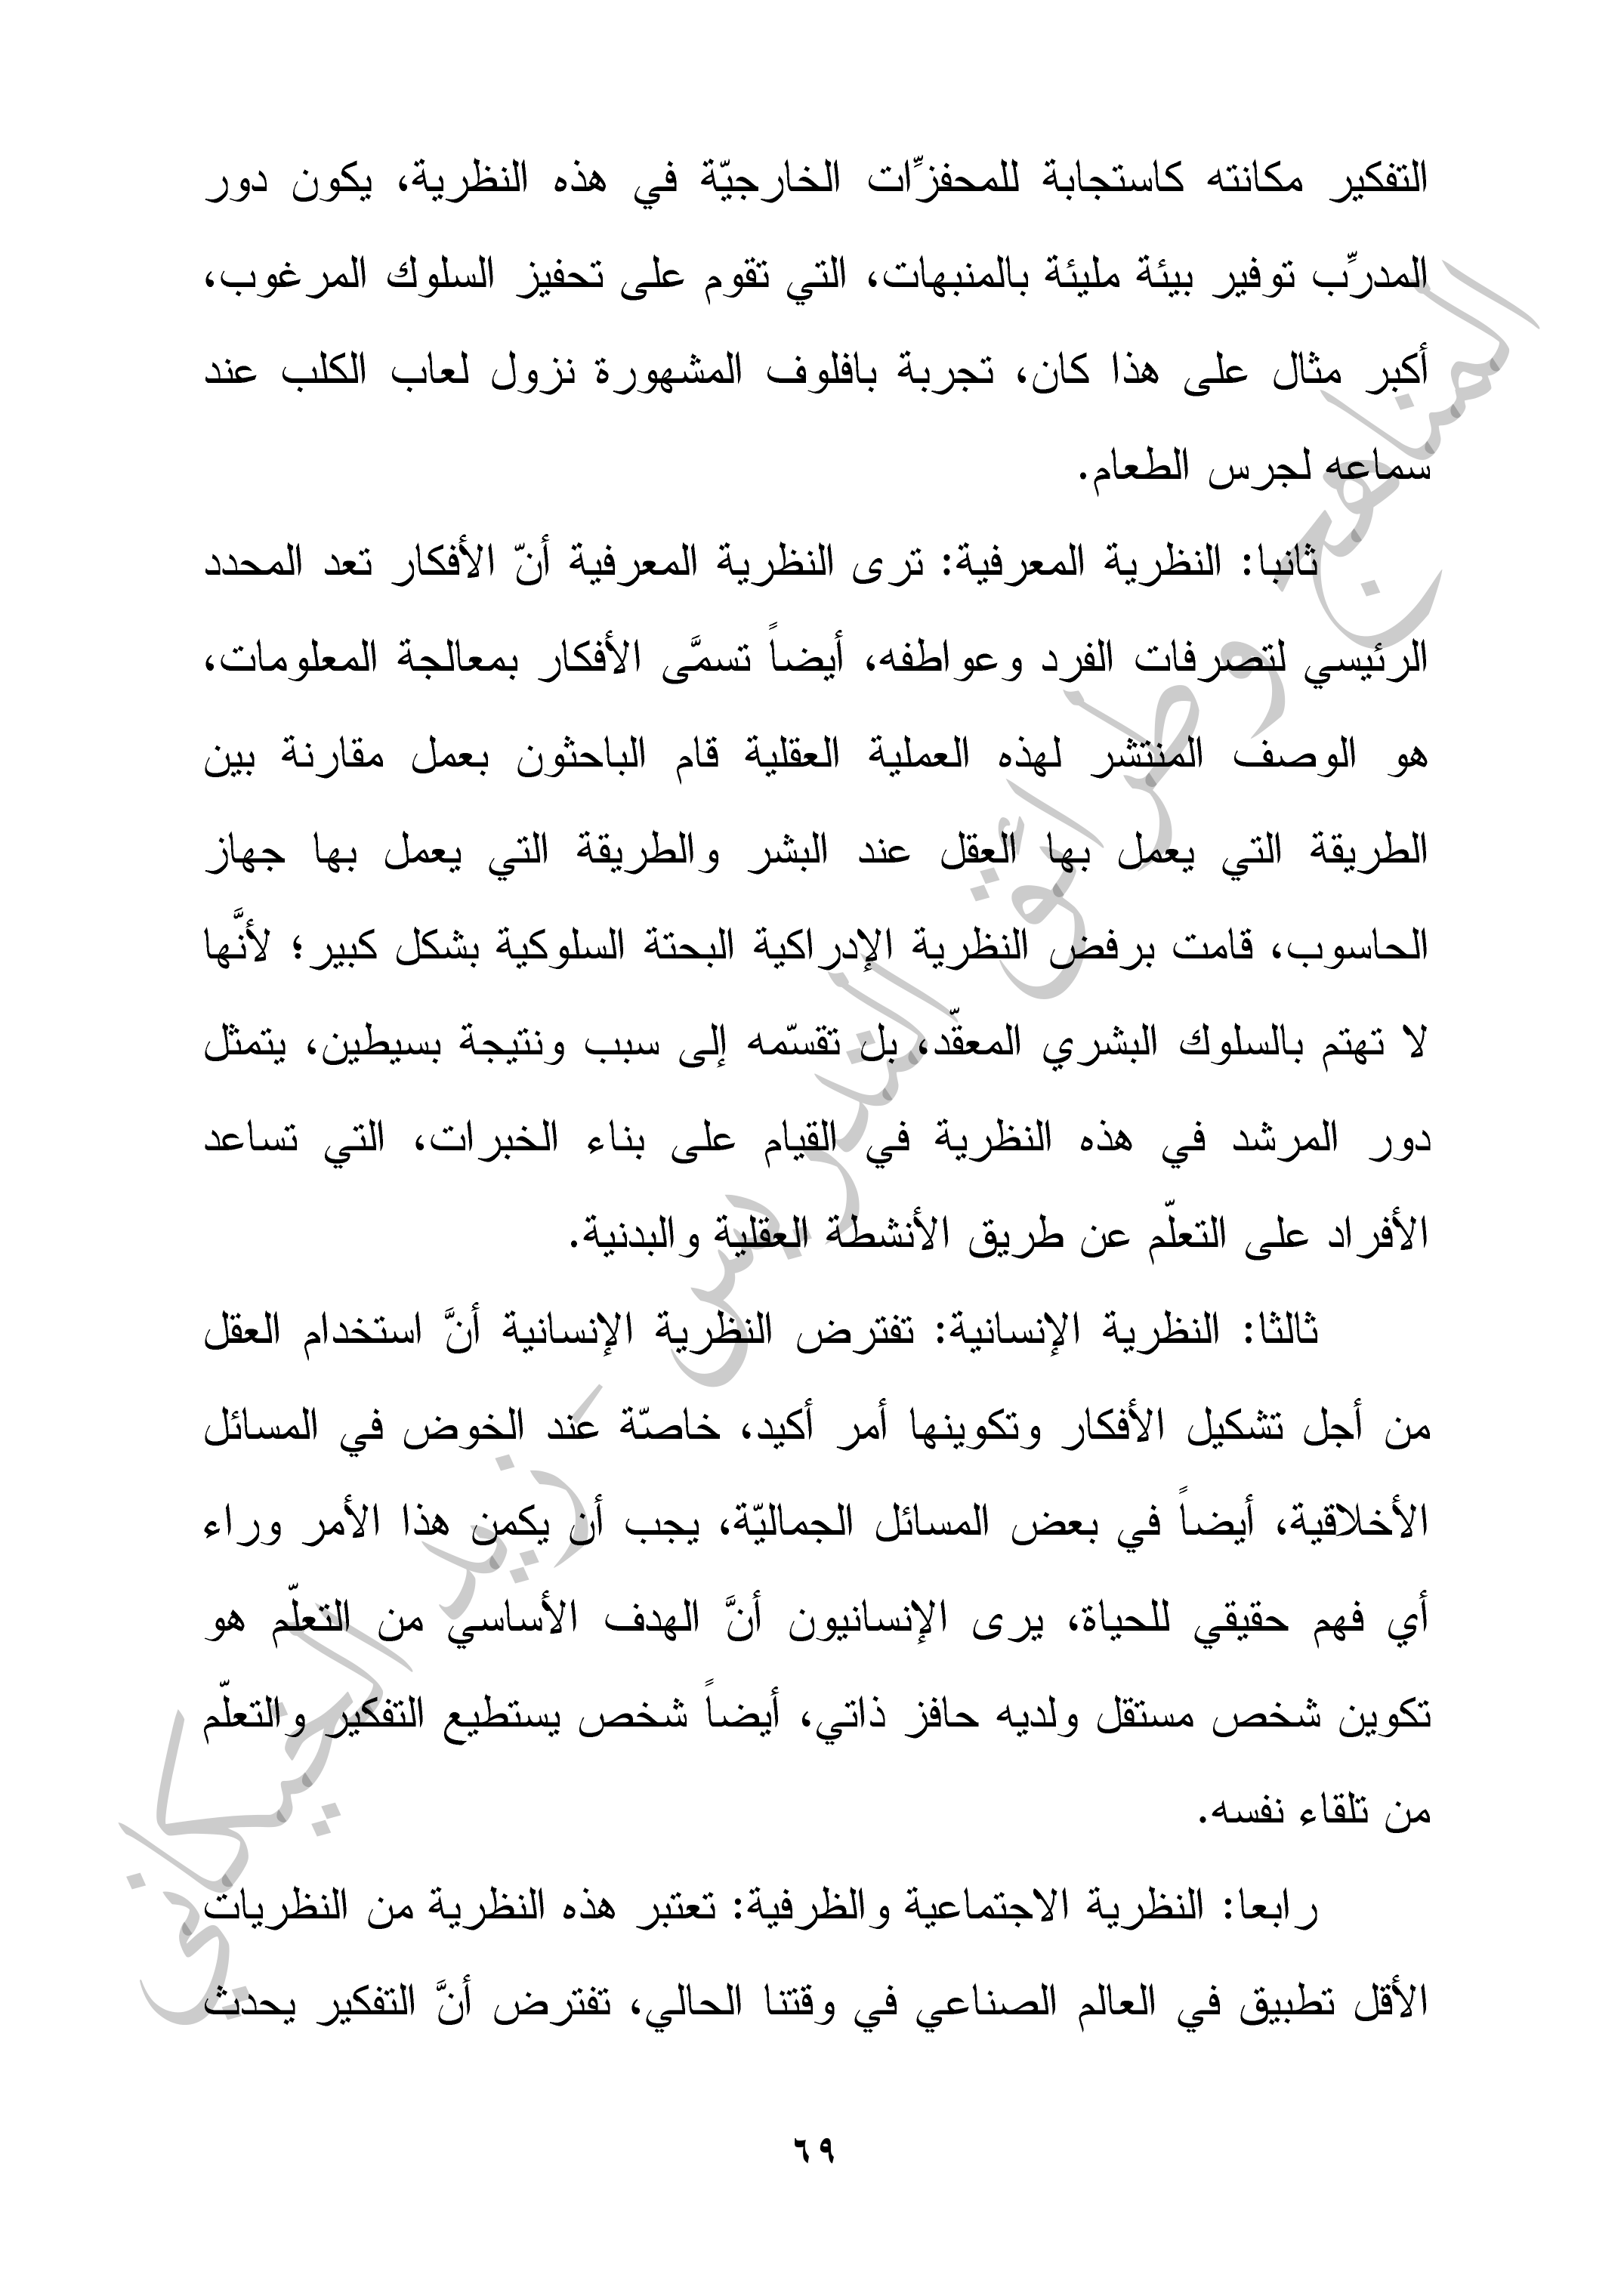 التفكير مكانته كاستجابة للمحفزِّات الخارجيّة في هذه النظرية، يكون دور
المدرِّب توفير بيئة مليئة بالمنبهات، التي تقوم على تحفيز السلوك المرغوب،
أكبر مثال على هذا كان، تجربة بافلوف المشهورة نزول لعاب الكلب عند
سماعه لجرس الطعام.
ثانبا: النظرية المعرفية: ترى النظرية المعرفية أنّ الأفكار تعد المحدد
الرئيسي لتصرفات الفرد وعواطفه، أيضاً تسمَّى الأفكار بمعالجة المعلومات،
هو الوصف المنتشر لهذه العملية العقلية قام الباحثون بعمل مقارنة بين
الطريقة التي يعمل بها العقل عند البشر والطريقة التي يعمل بها جهاز
الحاسوب، قامت برفض النظرية الإدراكية البحتة السلوكية بشكل كبير؛ لأنَّها
لا تهتم بالسلوك البشري المعقّد، بل تقسّمه إلى سبب ونتيجة بسيطين، يتمثل
دور المرشد في هذه النظرية في القيام على بناء الخبرات، التي تساعد
الأفراد على التعلّم عن طريق الأنشطة العقلية والبدنية.
ثالثا: النظرية الإنسانية: تفترض النظرية الإنسانية أنَّ استخدام العقل
من أجل تشكيل الأفكار وتكوينها أمر أكيد، خاصّة عند الخوض في المسائل
الأخلاقية، أيضاً في بعض المسائل الجماليّة، يجب أن يكمن هذا الأمر وراء
أي فهم حقيقي للحياة، يرى الإنسانيون أنَّ الهدف الأساسي من التعلّم هو
تكوين شخص مستقل ولديه حافز ذاتي، أيضاً شخص يستطيع التفكير والتعلّم
من تلقاء نفسه.
رابعا: النظرية الاجتماعية والظرفية: تعتبر هذه النظرية من النظريات
الأقل تطبيق في العالم الصناعي في وقتنا الحالي، تفترض أنَّ التفكير يحدث
٦٩
المناهج وطرائق التدريس - زيد الخيكاني